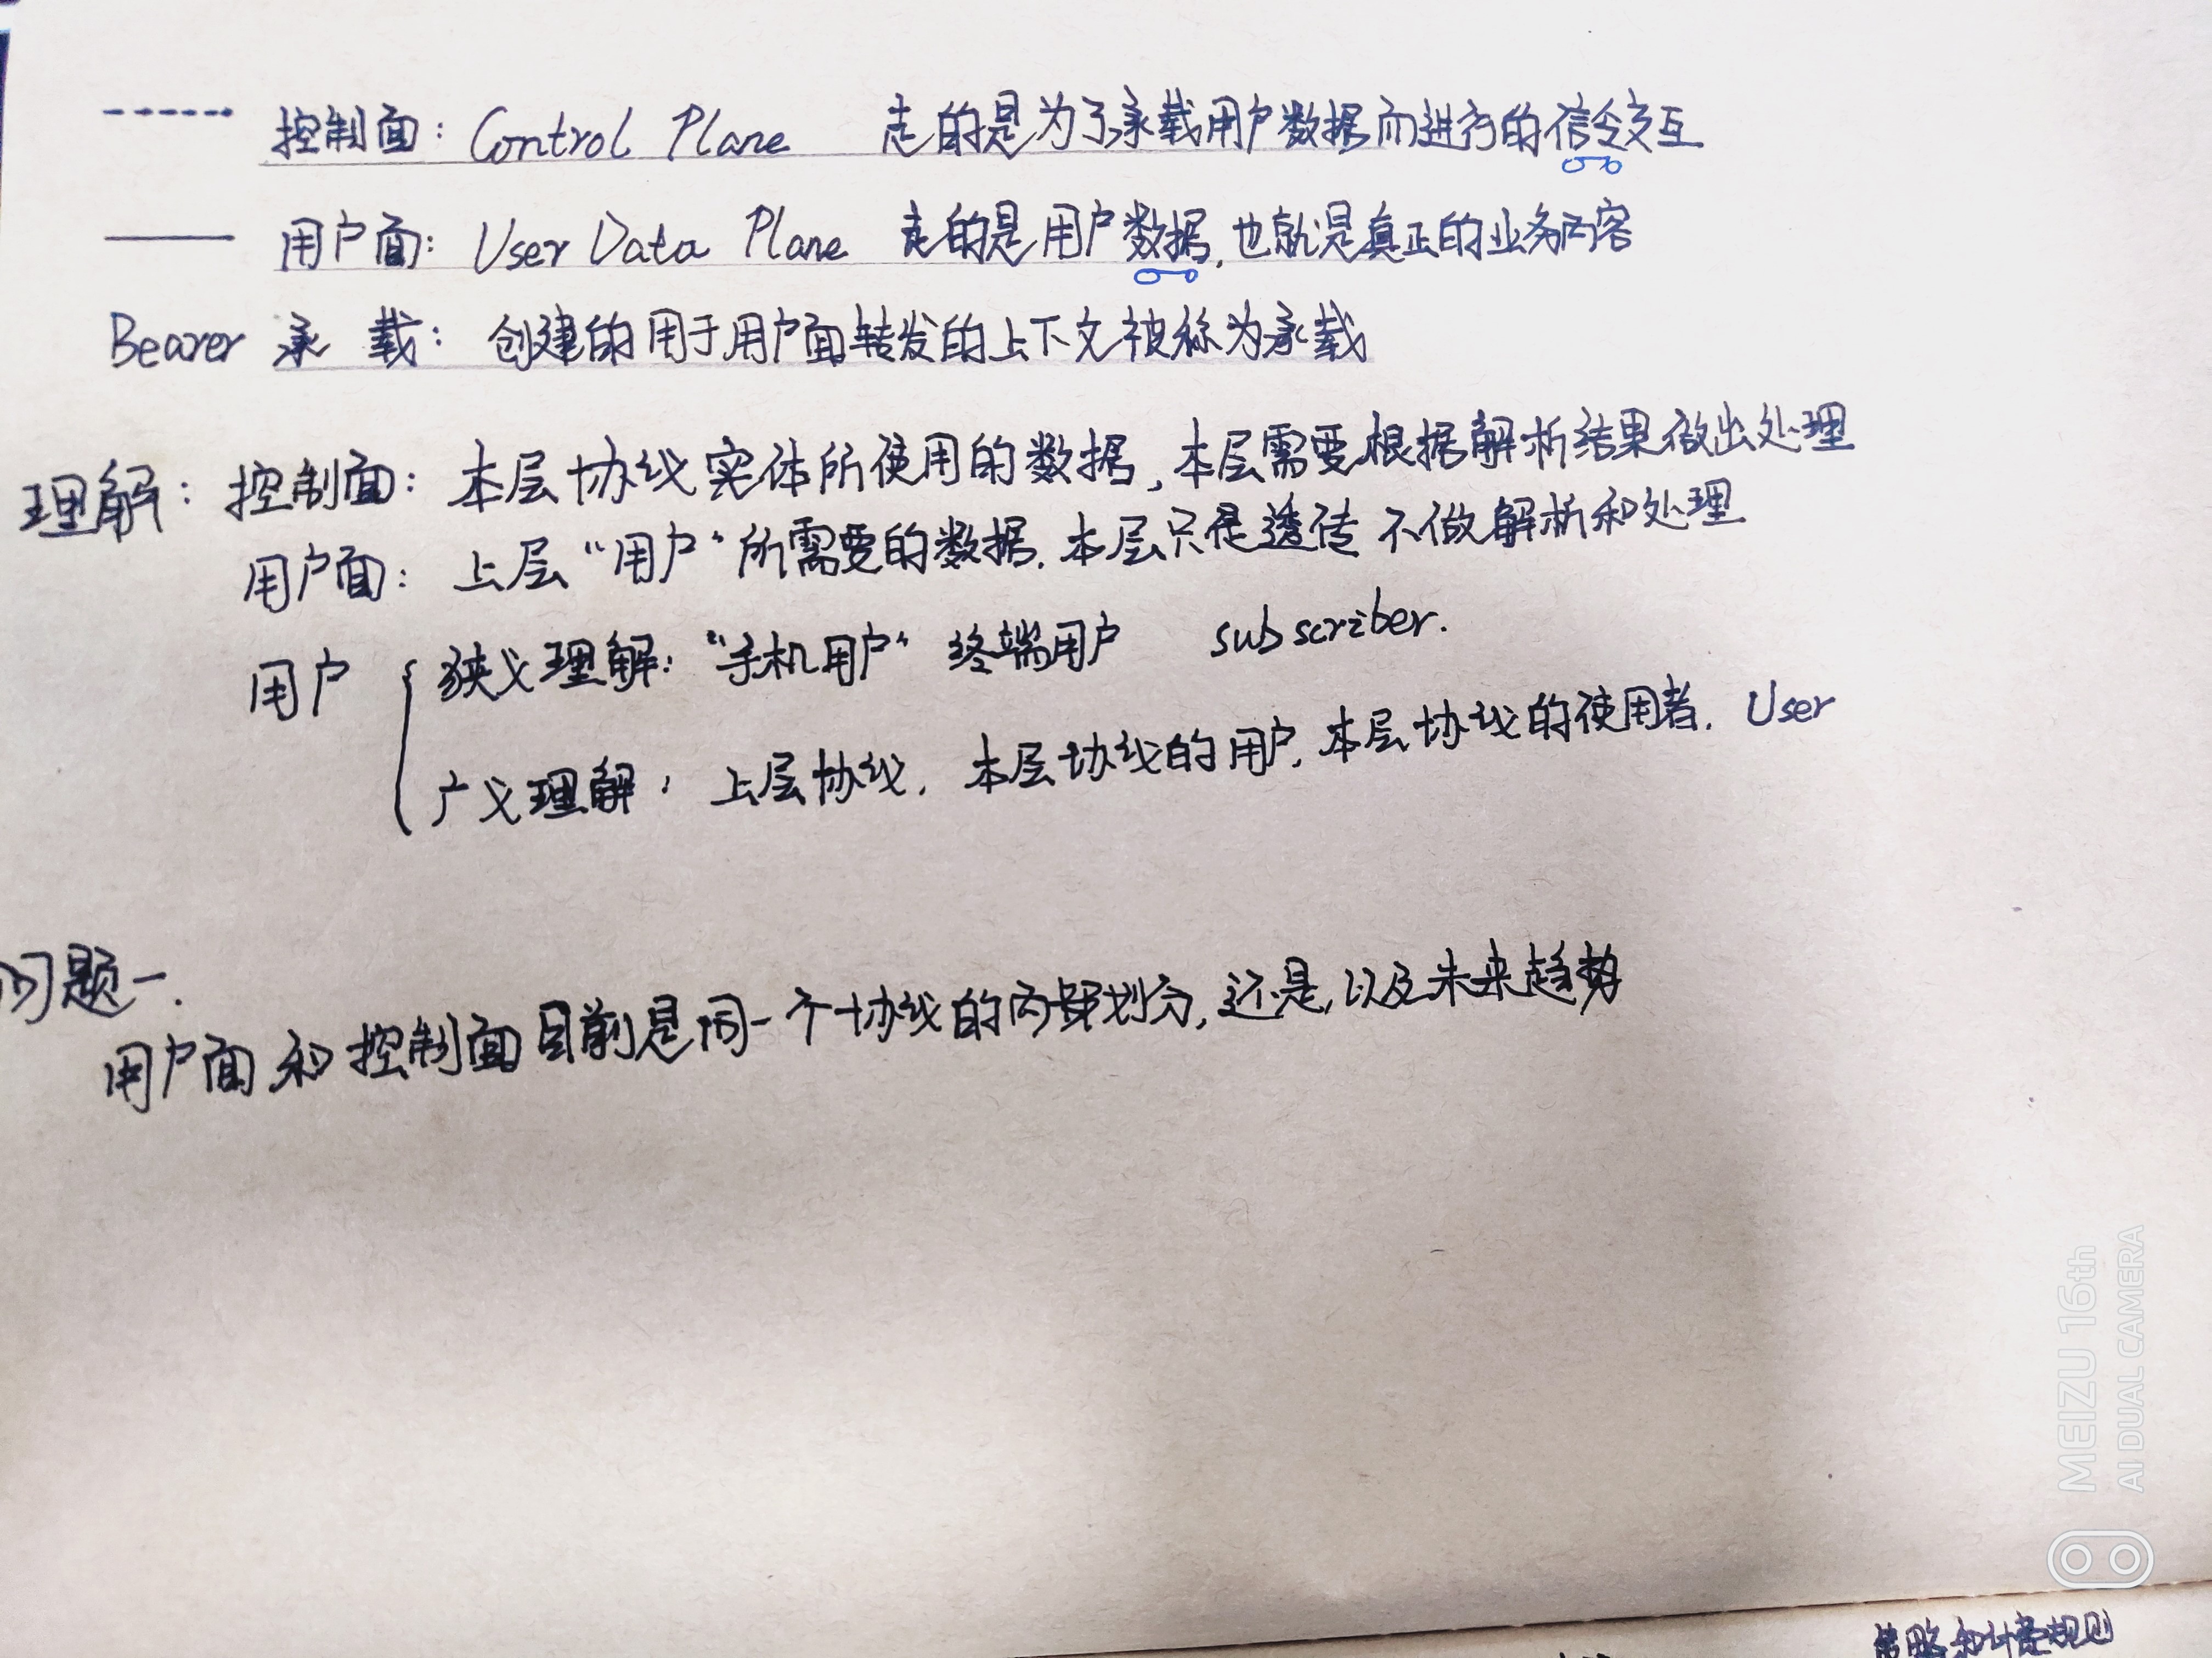 控制面： Control Plane 走的是为了承载用户数据而进行的信令交互
用户面： User Data Plane 走的是用户数据，也就是真正的业务内容
Bearer 承 载： 创建的用于用户面转发的上下文被称为承载
理解：控制面：本层协议实体所使用的数据，本层需要根据解析结果做出处理
用户面：上层“用户”所需要的数据．本层只是透传 不做解析和处理
用户 { 狭义理解：“手机用户” 终端用户 subscriber.
广义理解：上层协议，本层协议的用户，本层协议的使用者． User
习题一．
用户面和控制面目前是同一个协议的内部划分，还是，以及未来趋势
策略和计费规则
MEIZU 16th
AI DUAL CAMERA